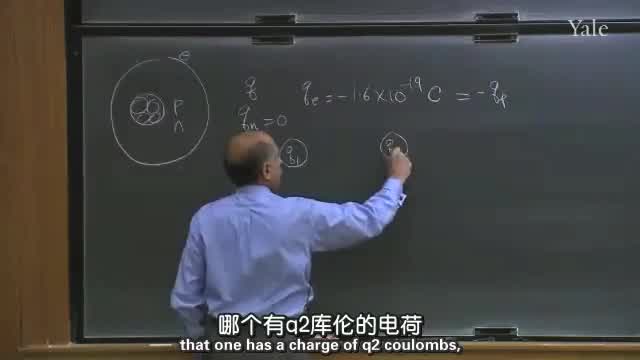 Yale
e
q
q_e = -1.6 × 10^-19 C = -q_p
P
n
q_n = 0
q_1
q
哪个有q2库伦的电荷
that one has a charge of q2 coulombs,